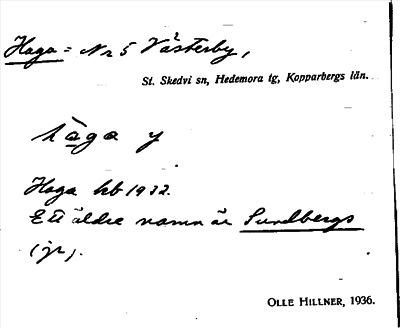 Haga = Nr 5 Västerby,
St. Skedvi sn, Hedemora tg, Kopparbergs län.
hàga y
Haga hb 1932.
Ett äldre namn är Sundbergs
(jr).
OLLE HILLNER, 1936.